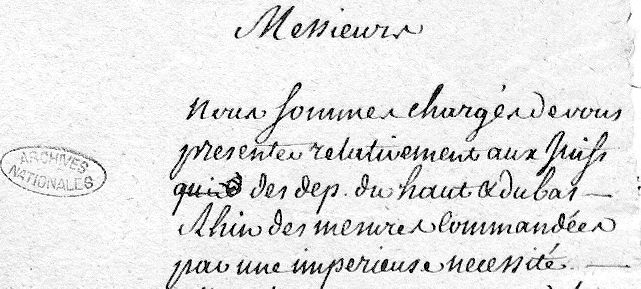 Messieurs
ARCHIVES
NATIONALES
Nous sommes chargés de vous
presenter relativement aux Juifs
des dep. du haut & du bas
Rhin des mesures commandées
par une imperieuse necessité